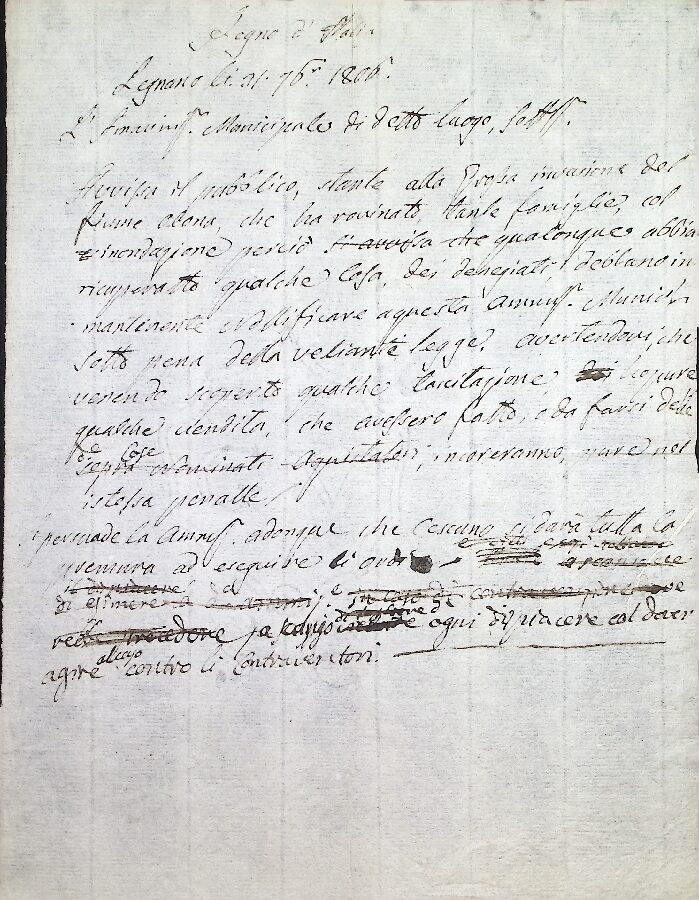 Regno d' Italia
Legnano li 21. 7b.r 1806.
L' Amminis. Municipale di detto luogo, sottos.
Avvisa il pubblico, stante alla grosa invasione del
fiume olona, che ha rovinato, tante famiglie, col
inondazione perciò si avvisa che qualonque abbia
ricuperatto qualche Cosa, dei denegiati debbano in
mantinente Nottificare aquesta Amminis. Munici.
sotto pena della veliante legge. avertendovi, che
venendo scoperto qualche Tacitazione, hopure
qualche vendita, che avessero fatto, o da farsi delle
Cose
sopra Nominati aquistatori, incoreranno, pure nel
istessa penalle.
Si persuade la Ammis. adonque che Cescuno si darà tutta la
premura ad eseguire li ordi
il dispiacere
di esimere la ammi. in caso di contravenzione
procedere ogni dispiacere col dover
agire contro li Contraventori.